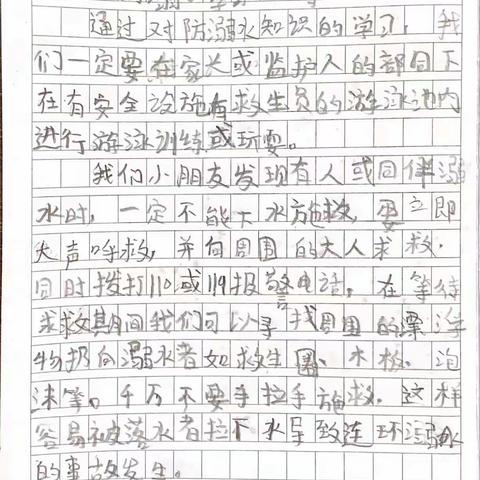 通过对防溺水知识的学习，我
们一定要在家长或监护人的部同下
在有安全设施有救生员的游泳池内
进行游泳训练或玩耍。
我们小朋友发现有人或同伴溺
水时，一定不能下水施救，要立即
大声呼救，并向周围的大人求救.
同时拨打110或119报警电话，在等待
求救期间我们可以寻找周围的漂浮
物扔向溺水者如救生圈、木板、泡
沫等。千万不要手拉手施救.这样
容易被落水者拉下水导致连环溺水
的事故发生。